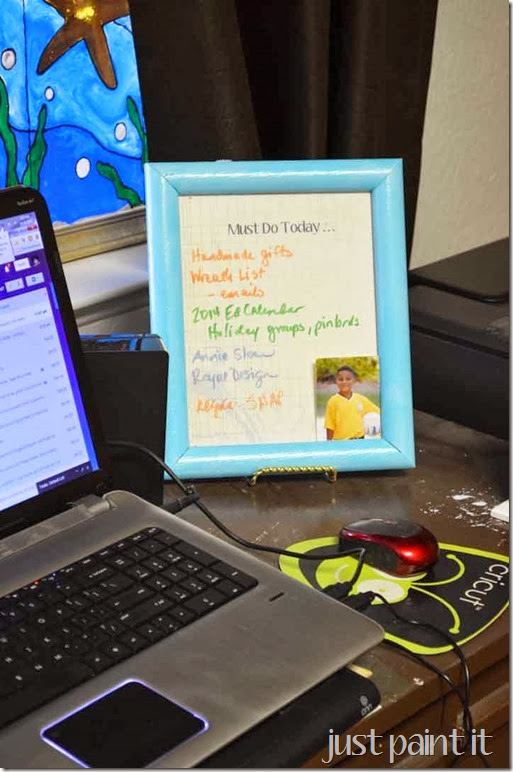 Must Do Today...
Handmade gifts
Wreath List
- emails
2014 Ed Calendar
Holiday groups, pinbrds
Annie Sloan
Royal Design
cricut
just paint it